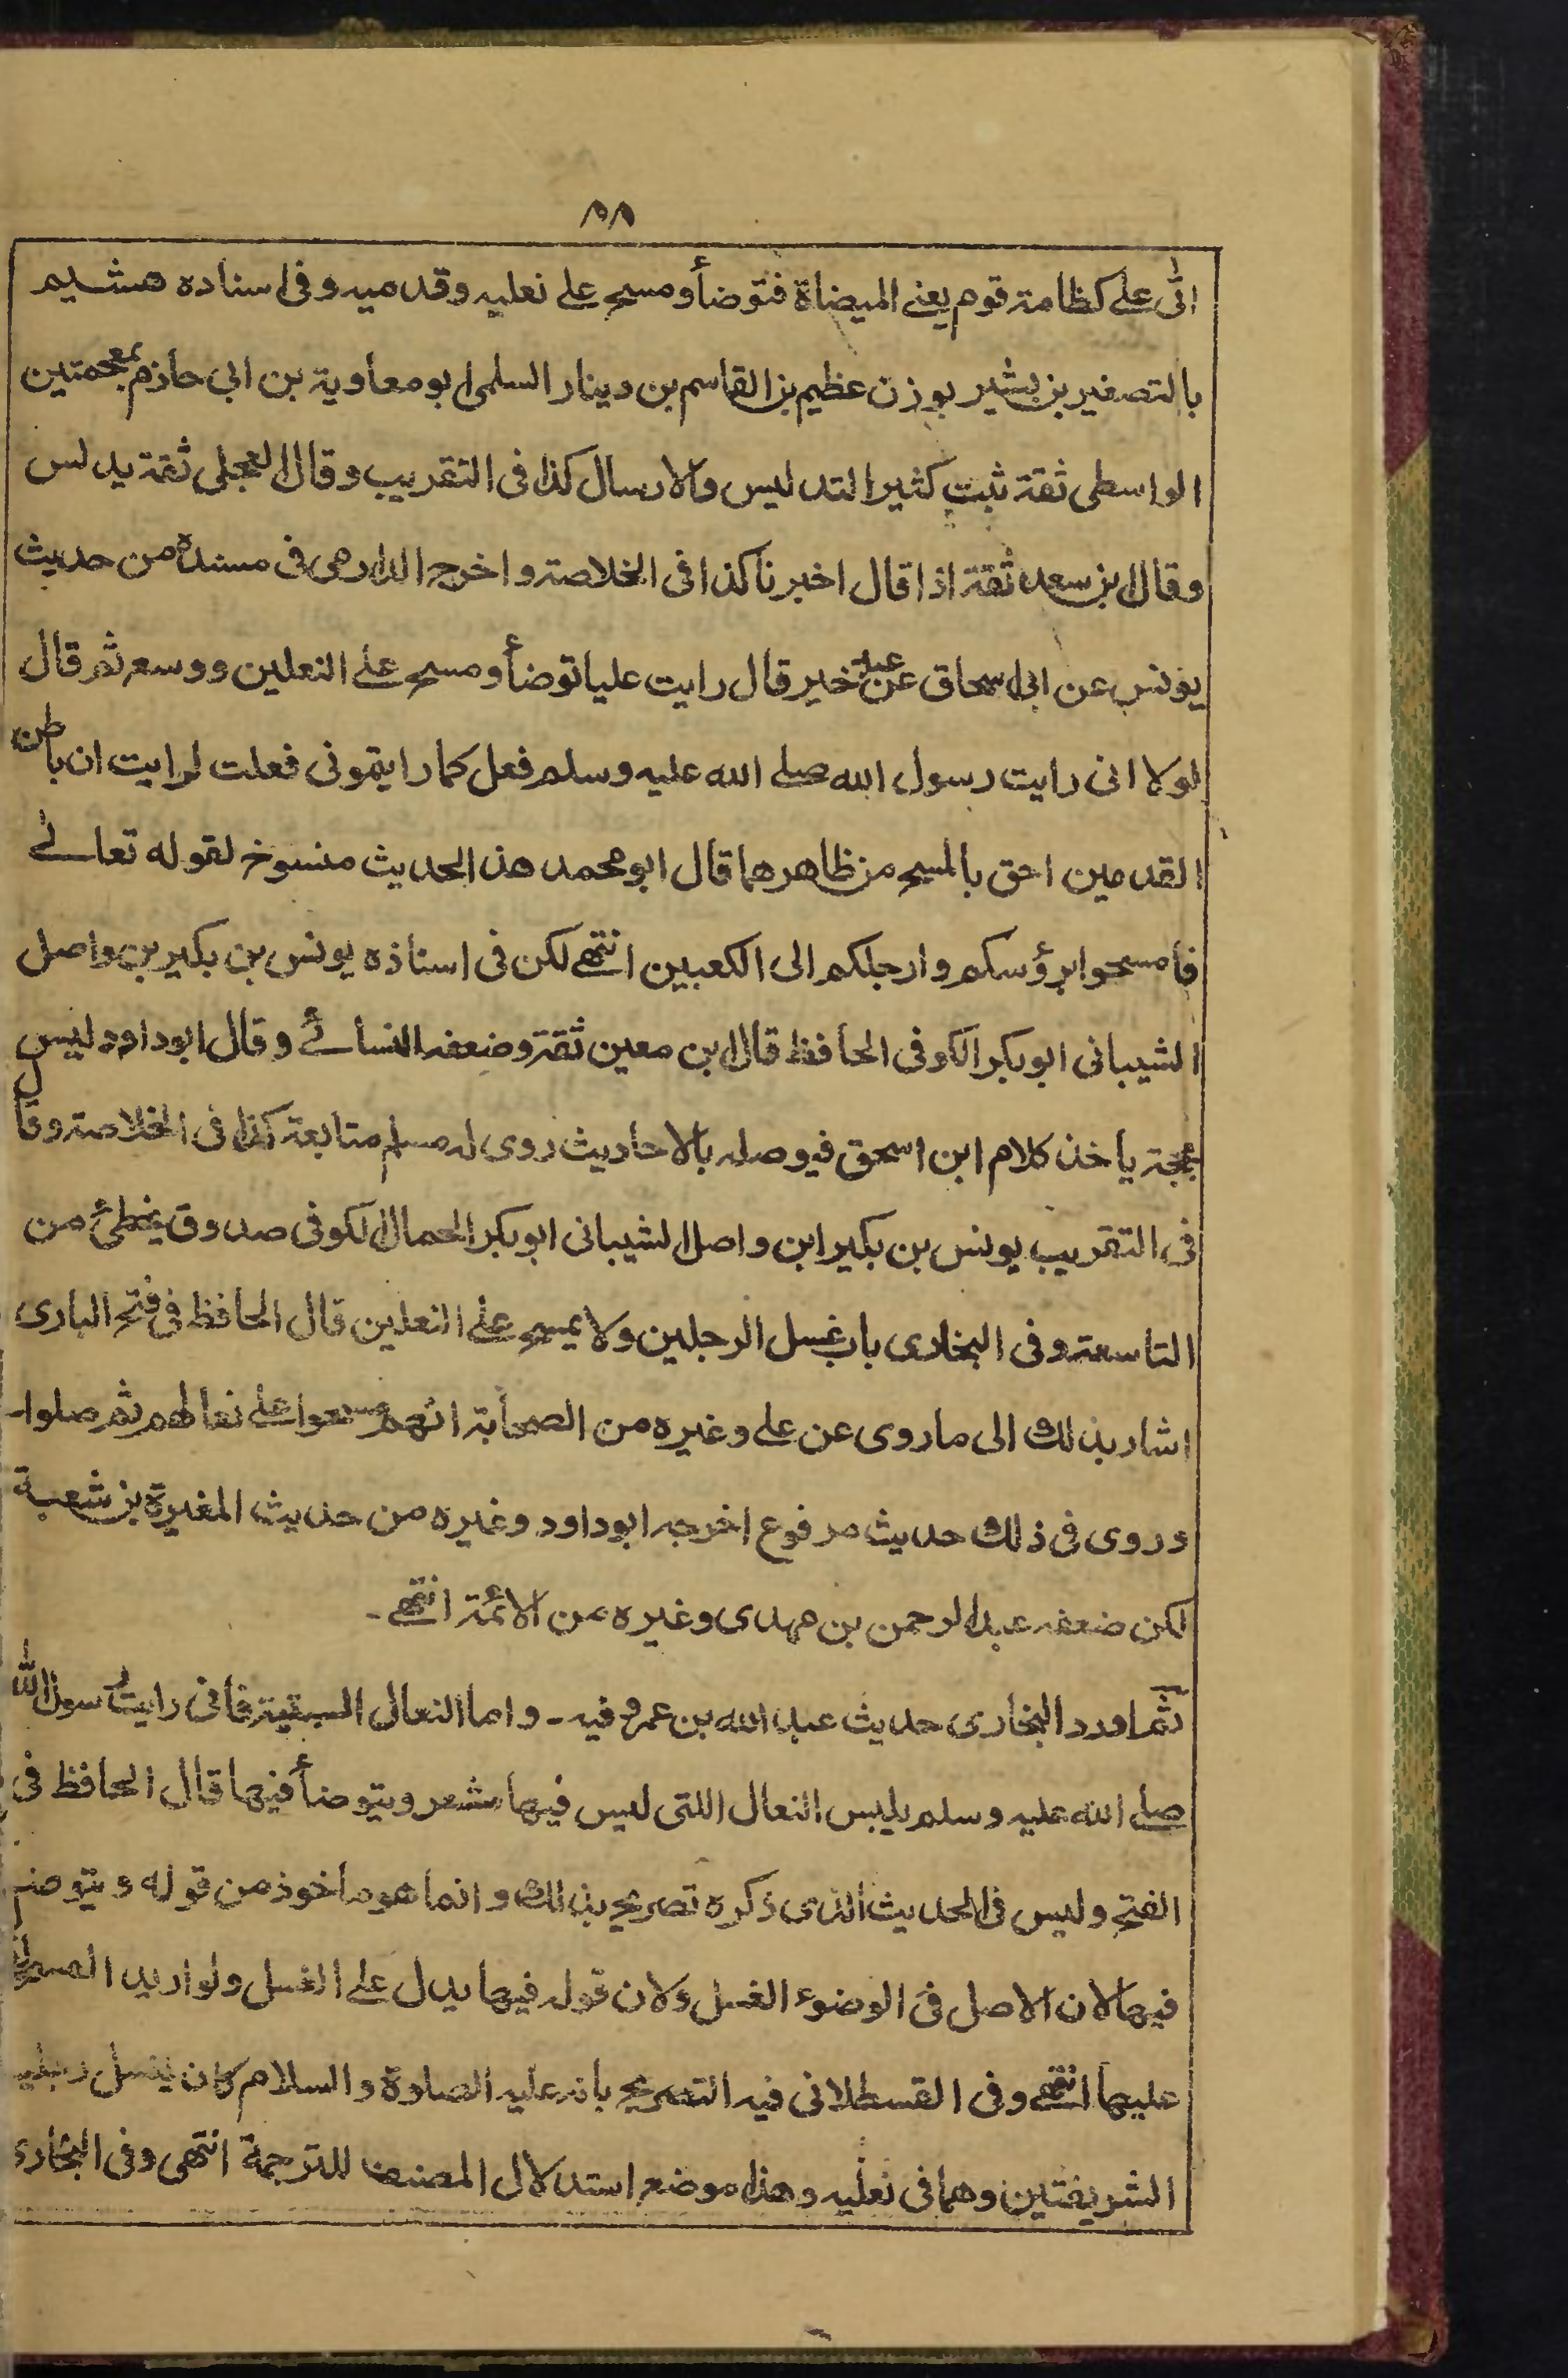 ٨٨
اتى على كظامة قوم يعنى الميضاة فتوضأ ومسح على نعليه وقدميه وفى اسناده هشيم
بالتصغير بن بشير بوزن عظيم بن القاسم بن دينار السلمى ابو معاوية بن ابى حازم بمعجمتين
الواسطى ثقة ثبت كثير التدليس والارسال كذا فى التقريب وقال العجلى ثقة يدلس
وقال بن سعد ثقة اذا قال اخبرنا كذا فى الخلاصة واخرج الدارمى فى مسنده من حديث
يونس عن ابى اسحاق عن عبد خير قال رايت عليا توضأ ومسح على النعلين ووسع ثم قال
لولا انى رايت رسول الله صلى الله عليه وسلم فعل كما رايتمونى فعلت لرايت ان باطن
القدمين احق بالمسح من ظاهرهما قال ابو محمد هذا الحديث منسوخ لقوله تعالى
فامسحوا برؤسكم وارجلكم الى الكعبين انتهى لكن فى اسناذه يونس بن بكير بن واصل
الشيبانى ابوبكر الكوفى الحافظ قال ابن معين ثقة وضعفه النسائى وقال ابوداود ليس
بحجة يأخذ كلام ابن اسحق فيوصله بالاحاديث روى له مسلم متابعة كذا فى الخلاصة وقال
فى التقريب يونس بن بكير ابن واصل الشيبانى ابوبكر الجمال الكوفى صدوق يخطئ من
التاسعة وفى البخارى باب غسل الرجلين ولا يمسح على النعلين قال الحافظ فى فتح البارى
اشار بذلك الى ما روى عن على وغيره من الصحابة انهم مسحوا على نعالهم ثم صلوا
وروى فى ذلك حديث مرفوع اخرجه ابوداود وغيره من حديث المغيرة بن شعبة
لكن ضعفه عبد الرحمن بن مهدى وغيره من الائمة انتهى -
ثم اورد البخارى حديث عبد الله بن عمرو فيه - واما النعال السبتية فانى رايت رسول الله
صلى الله عليه وسلم يلبس النعال اللتى ليس فيها شعر ويتوضأ فيها قال الحافظ فى
الفتح وليس فى الحديث الذى ذكره تصريح بذلك وانما هو ماخوذ من قوله ويتوضأ
فيها لان الاصل فى الوضوء الغسل ولان قوله فيها يدل على الغسل ولو اريد المسح لقال
عليها انتهى وفى القسطلانى فيه التصريح بانه عليه الصلوة والسلام كان يغسل رجليه
الشريفتين وهما فى نعليه وهذا موضع استدلال المصنف للترجمة انتهى وفى البخارى